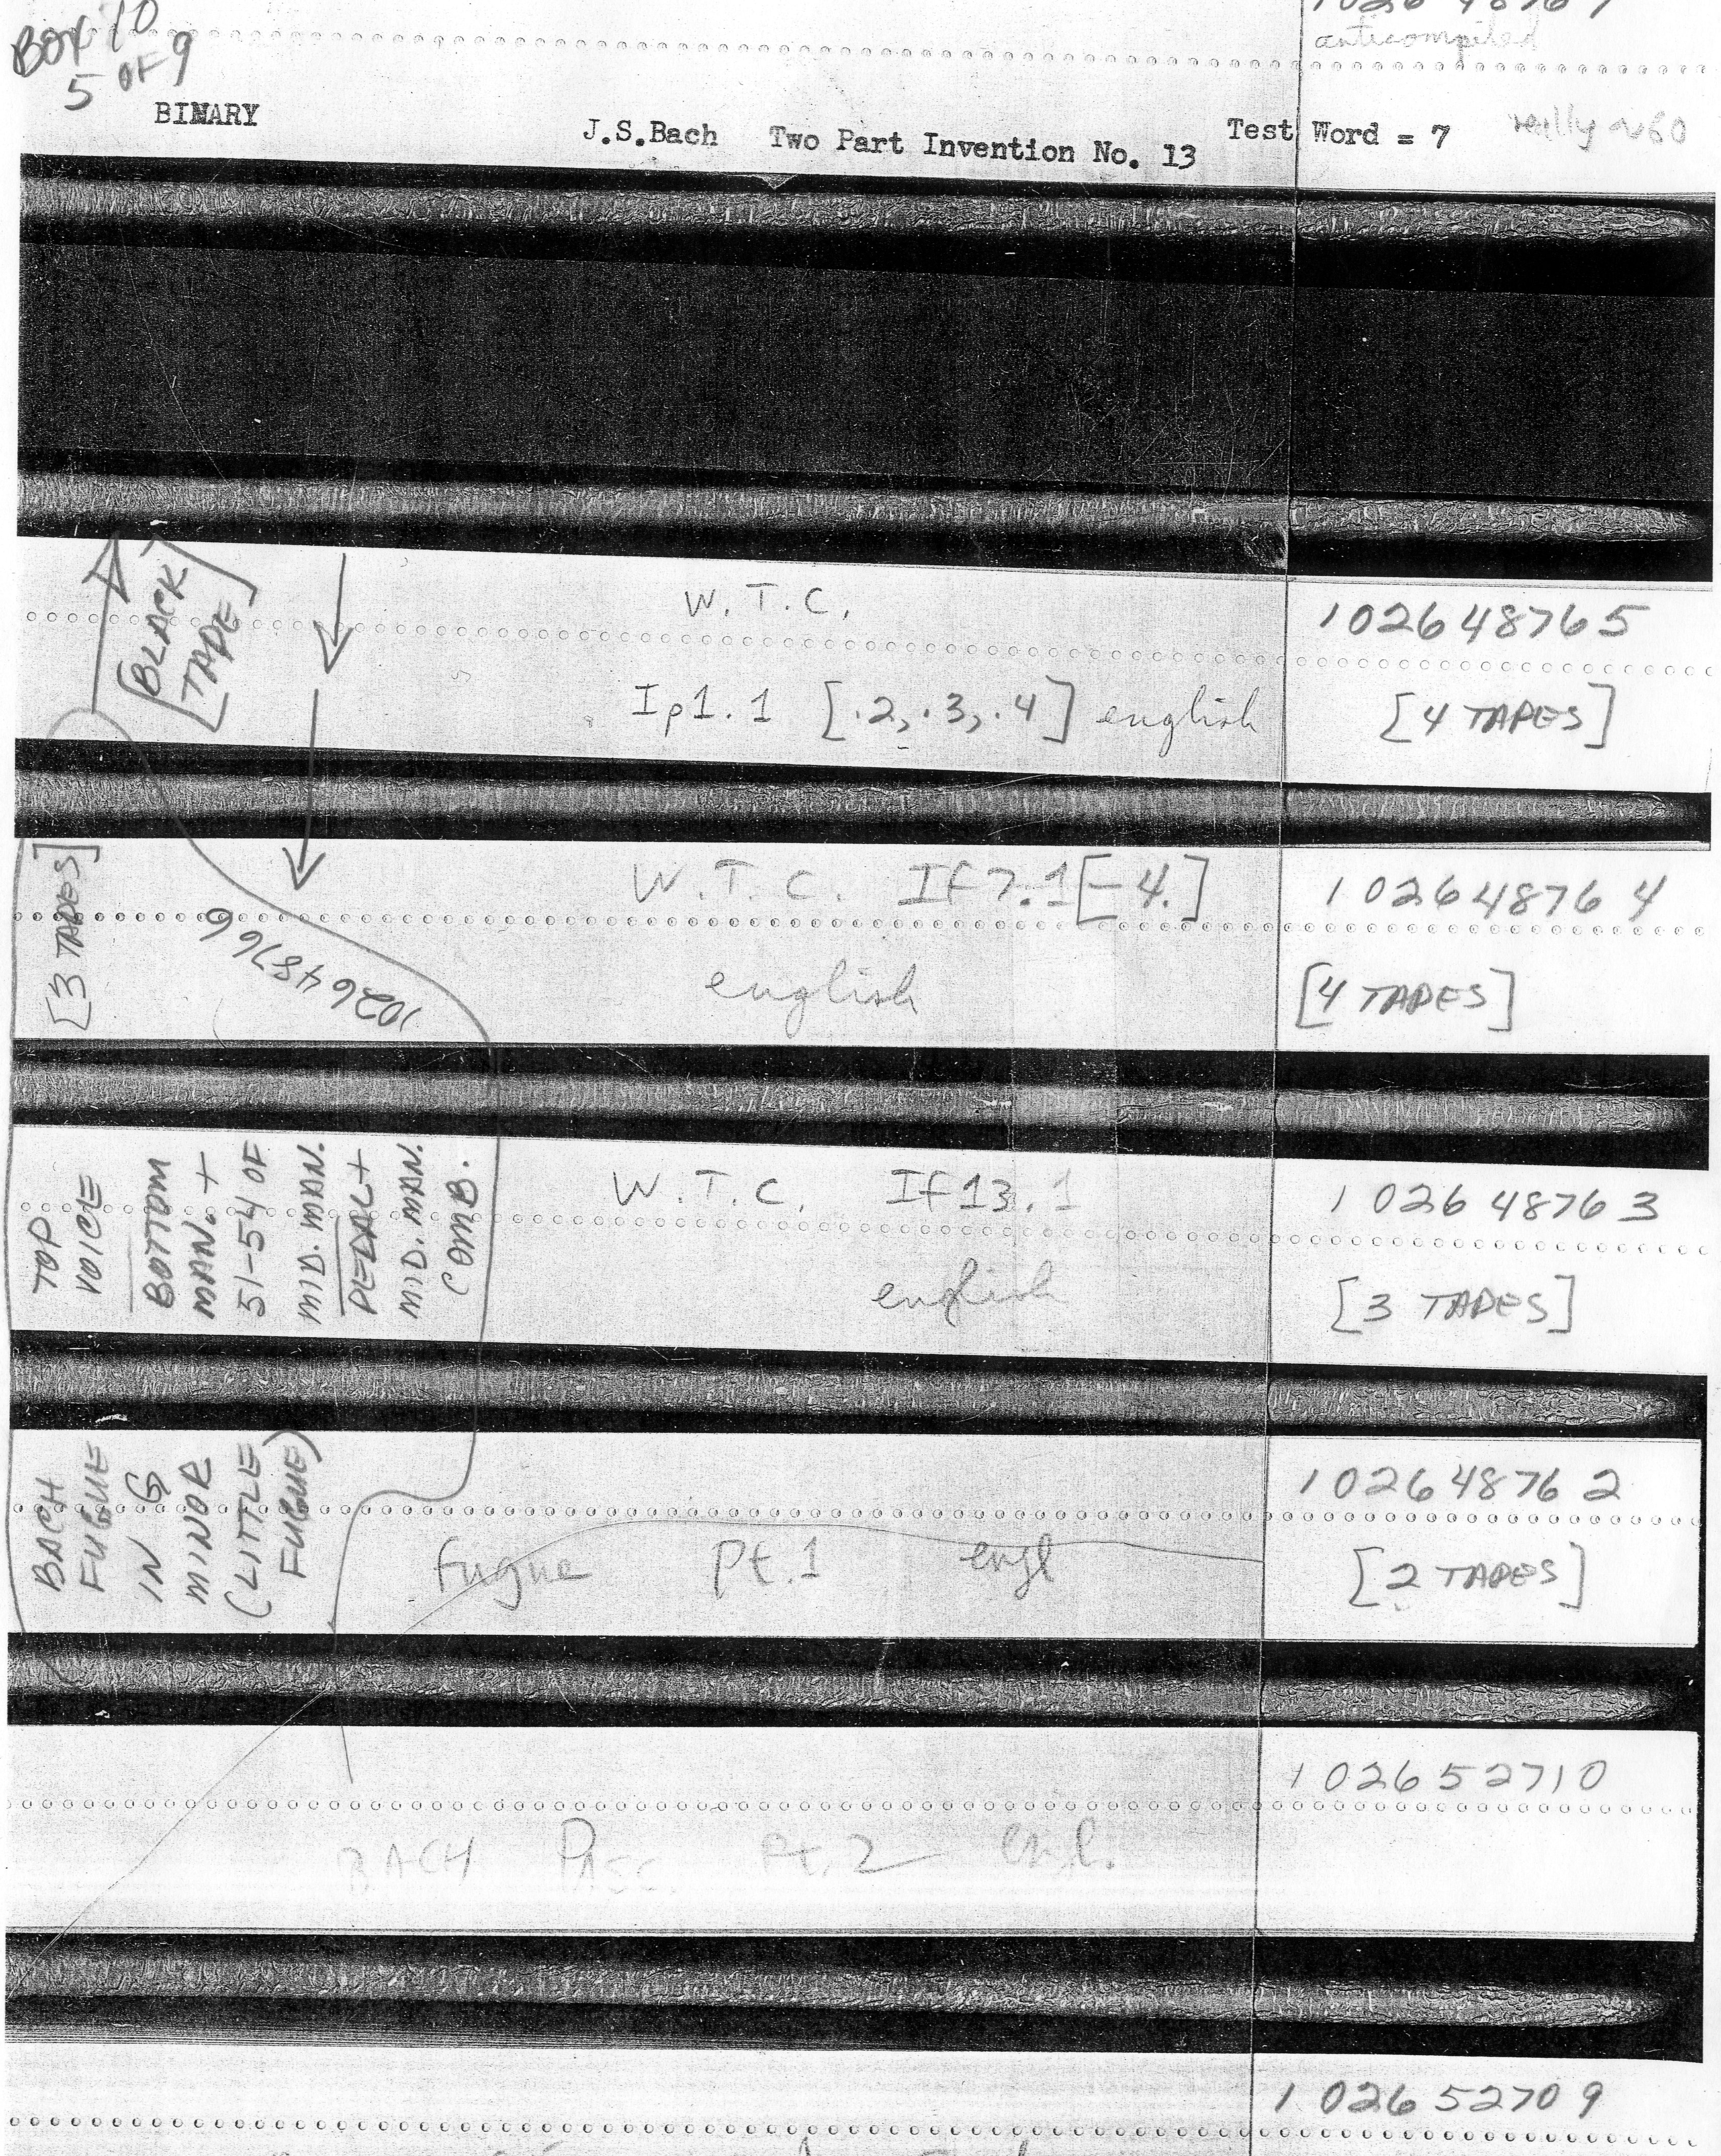 BOX 10
5 OF 9
anticompiled
BINARY
J.S.Bach Two Part Invention No. 13
Test Word = 7
really ~60
[BLACK
TAPE]
W. T. C.
102648765
Ip1.1 [.2, .3, .4] english
[4 TAPES]
[3 TAPES]
102648766
W. T. C. If7.1[-4.]
102648764
english
[4 TAPES]
TOP
VOICE
BOTTOM
MAN. +
51-54 OF
MID. MAN.
PEDAL +
MID. MAN.
COMB.
W. T. C. If13.1
102648763
english
[3 TAPES]
BACH
FUGUE
IN G
MINOR
(LITTLE
FUGUE)
102648762
fugue pt.1 engl
[2 TAPES]
102652710
BACH PASC. Pt.2 engl.
102652709